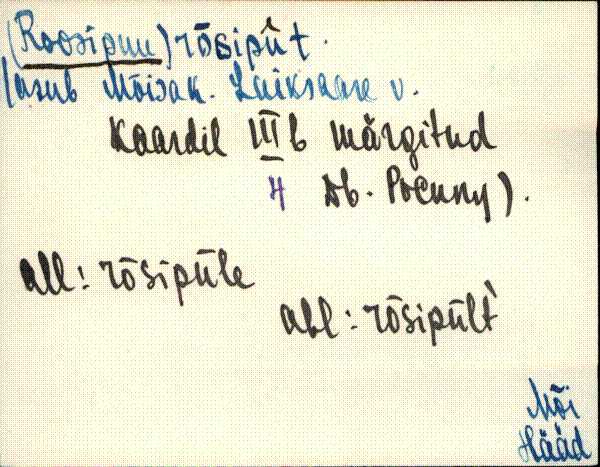 (Roosipuu) rõsipût.
(asub Mõisak. Laiksaare v.
Kaardil IIIb märgitud
4 Db. Росину).
all: rõsipüle
abl: rõsipült
Mõi
Hääd